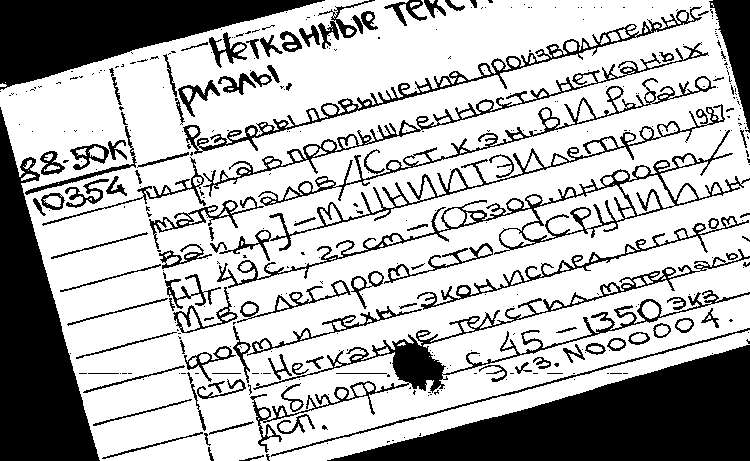 Нетканные текст
риалы.
Резервы повышения производительнос-
88-50К
10354
ти труда в промышленности нетканых
материалов / [Сост. к.э.н. В.И. Рыбако-
ва и др.] – М.: ЦНИИТЭИлегпром, 1987.-
[1], 49 с.; 22 см. – (Обзор. информ. /
М-во лег. пром-сти СССР, ЦНИИ ин-
форм. и техн.-экон. исслед. лег. пром-
сти. Нетканые текстил. материалы
Библиогр.: с. 45 – 1350 экз.
ДСП. Экз. N000004.